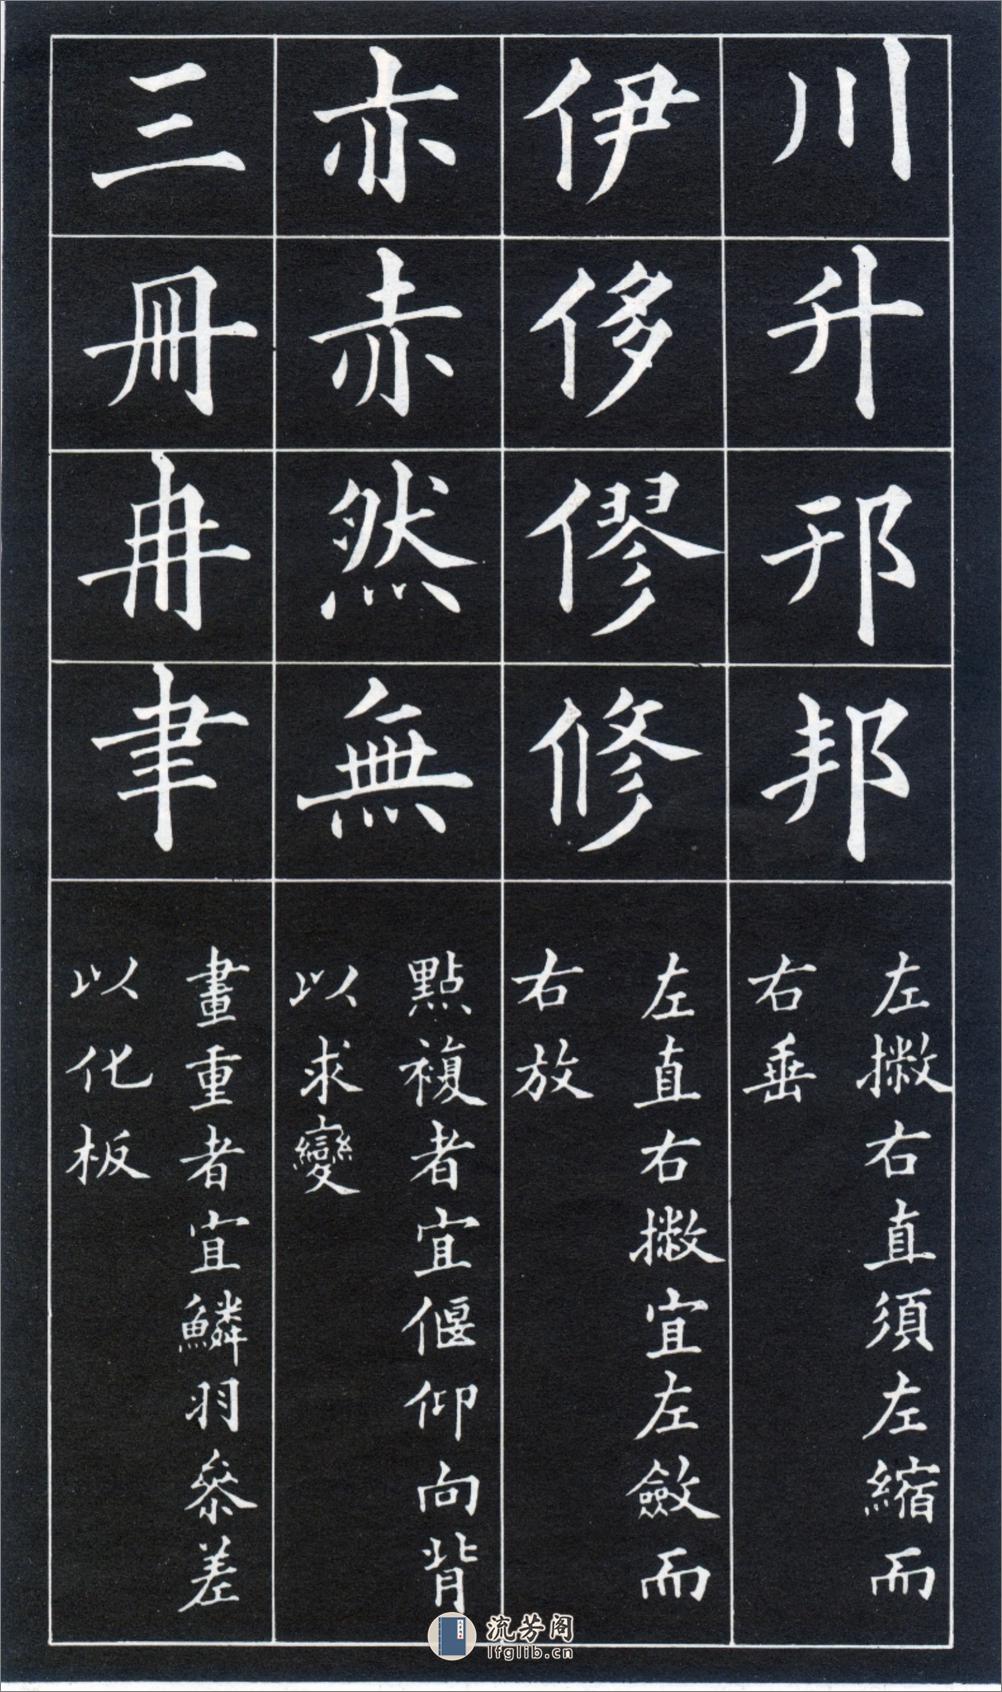 川升邗邦
左撇右直須左縮而
右垂
伊侈僇修
左直右撇宜左斂而
右放
亦赤然無
點複者宜偃仰向背
以求變
三冊冉聿
畫重者宜鱗羽參差
以化板
流芳阁
lfglib.cn